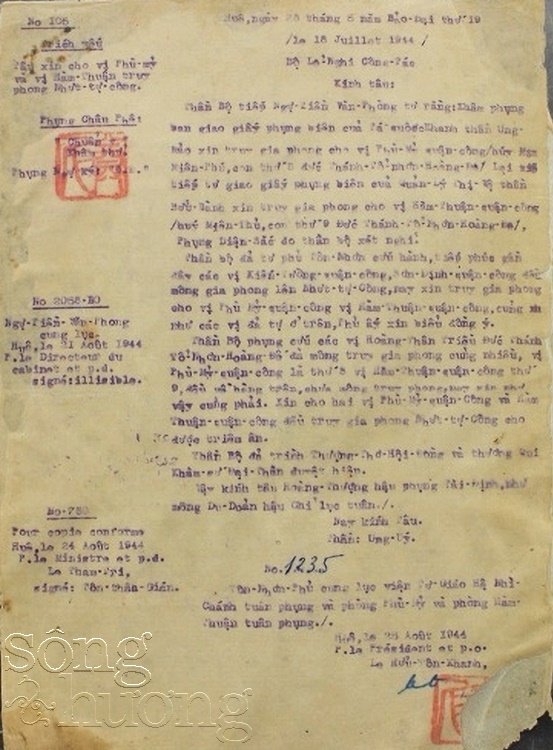 No 105
Trích Tấu
Tấu xin cho vị Phù-Mỹ
và vị Hàm-Thuận truy
phong Nhứt-tự-Công.
Phụng Châu Phê:
Chuẩn y
Khâm thử.
Phụng Ngự Ký
No 2088-BO
Ngự-Tiền-Văn-Phòng
cung lục.
Huế, le 21 Août 1944
P.le Directeur du
cabinet et p.d.
signé:illisible.
No-788
Pour copie conforme
Huế, le 24 Août 1944
P.le Ministre et p.d.
Le Tham-Tri,
signé: Tôn-thất-Giản.
Huế, ngày 28 tháng 5 năm Bảo-Đại thứ 19
/le 18 Juillet 1944/
Bộ Lễ-Nghi Công-Tác
Kính tấu:
Thần Bộ tiếp Ngự-Tiền Văn-Phòng tư rằng: Khâm phụng
ban giao giấy phụng biên của Tá-quốc-Khanh thần Ưng-
xin truy gia phong cho vị Phù-Mỹ quận-công/húy
Miên-Phú, con thứ 8 đức Thánh-Tổ-Nhơn-Hoàng-Đế/ Lại
tiếp tư giao giấy phụng biên của Quản-Lý Thị-Vệ thần
xin truy gia phong cho vị Hàm-Thuận-quận-công
/huý Miên-Thủ, con thứ 9 Đức Thánh-Tổ-Nhơn-Hoàng-Đế/,
Phụng Diện-Sắc do thần bộ xét nghĩ.
Thần bộ đã tư phủ Tôn-Nhơn cứu hành, tiếp phúc gần
đây các vị Kiến-Tường-quận-công, Sơn-Định-quận-công đều
mông gia phong lên Nhứt-tự-Công, nay xin truy gia phong
cho vị Phù-Mỹ-quận-công vị Hàm-Thuận-quận-công, cũng như
như các vị đã tự ở trên, Phủ ấy xin biểu đồng ý.
Thần Bộ phụng cứu các vị Hoàng-Thân Triều Đức Thánh
Tổ-Nhơn-Hoàng-Đế đã mông truy gia phong cũng nhiều, vị
Phù-Mỹ-quận-công là thứ 8 vị Hàm-Thuận-quận-công thứ
9, đều về hàng trên, chưa mông truy phong, nay xin như
vậy cũng phải. Xin cho hai vị Phù-Mỹ-quận-công và Hàm
Thuận-quận-công đều truy gia phong Nhứt-tự-Công cho
được triêm ân.
Thần Bộ đã trình Thượng-Thơ-Hội-Đồng và thương Quí
Khâm-sứ Đại-Thần duyệt hiệp.
Vậy kính tấu Hoàng-Thượng hậu phụng Tài-Định, như
mông Du-Doãn hậu Chỉ lục tuân./.
Nay kính Tấu.
Thần: Ưng-Uý.
No. 1235
Tôn-Nhơn-Phủ cung lục viện Tư-Giáo Hệ Nhì-
Chánh tuân phụng và phòng Phù-Mỹ và phòng Hàm-
Thuận tuân phụng./.
Huế, le 28 Août 1944
P.le Président et p.o.
Le Hữu-Tôn-Khanh,
Sông
Hương